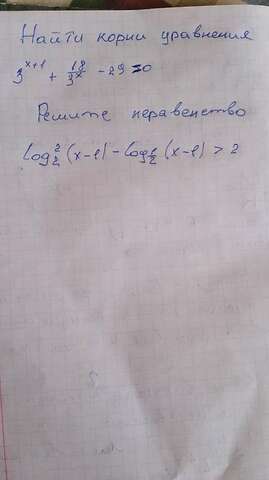 Найти корни уравнения
3^{x+1} + \frac{18}{3^x} - 29 = 0
Решите неравенство
log_2^2 (x-1) - log_{\frac{1}{2}} (x-1) > 2